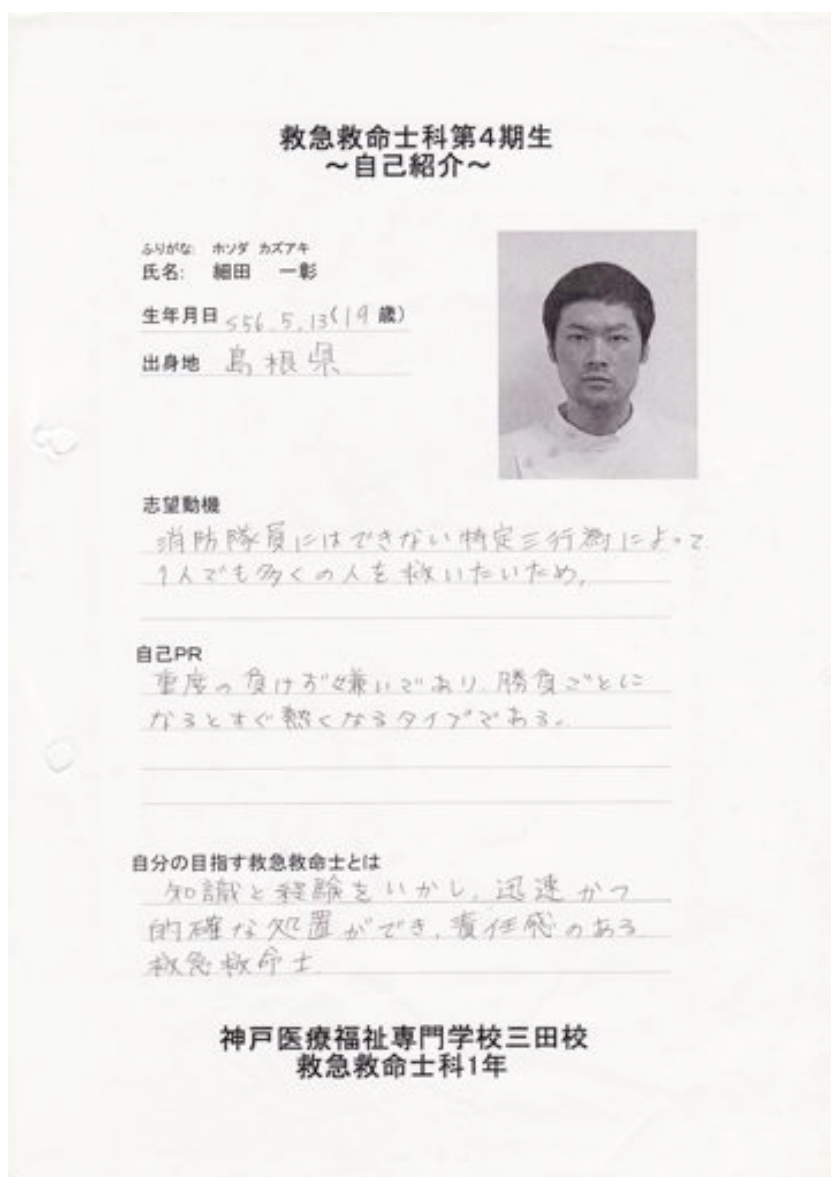 救急救命士科第4期生
～自己紹介～
ふりがな: ホソダ カズアキ
氏名: 細田 一彰
生年月日 S56.5.13(19歳)
出身地 島根県
志望動機
消防隊員にはできない特定三行為によって
1人でも多くの人を救いたいため。
自己PR
重度の負けず嫌いであり、勝負ごとに
なるとすぐ熱くなるタイプである。
自分の目指す救急救命士とは
知識と経験をいかし、迅速かつ
的確な処置ができ、責任感のある
救急救命士
神戸医療福祉専門学校三田校
救急救命士科1年